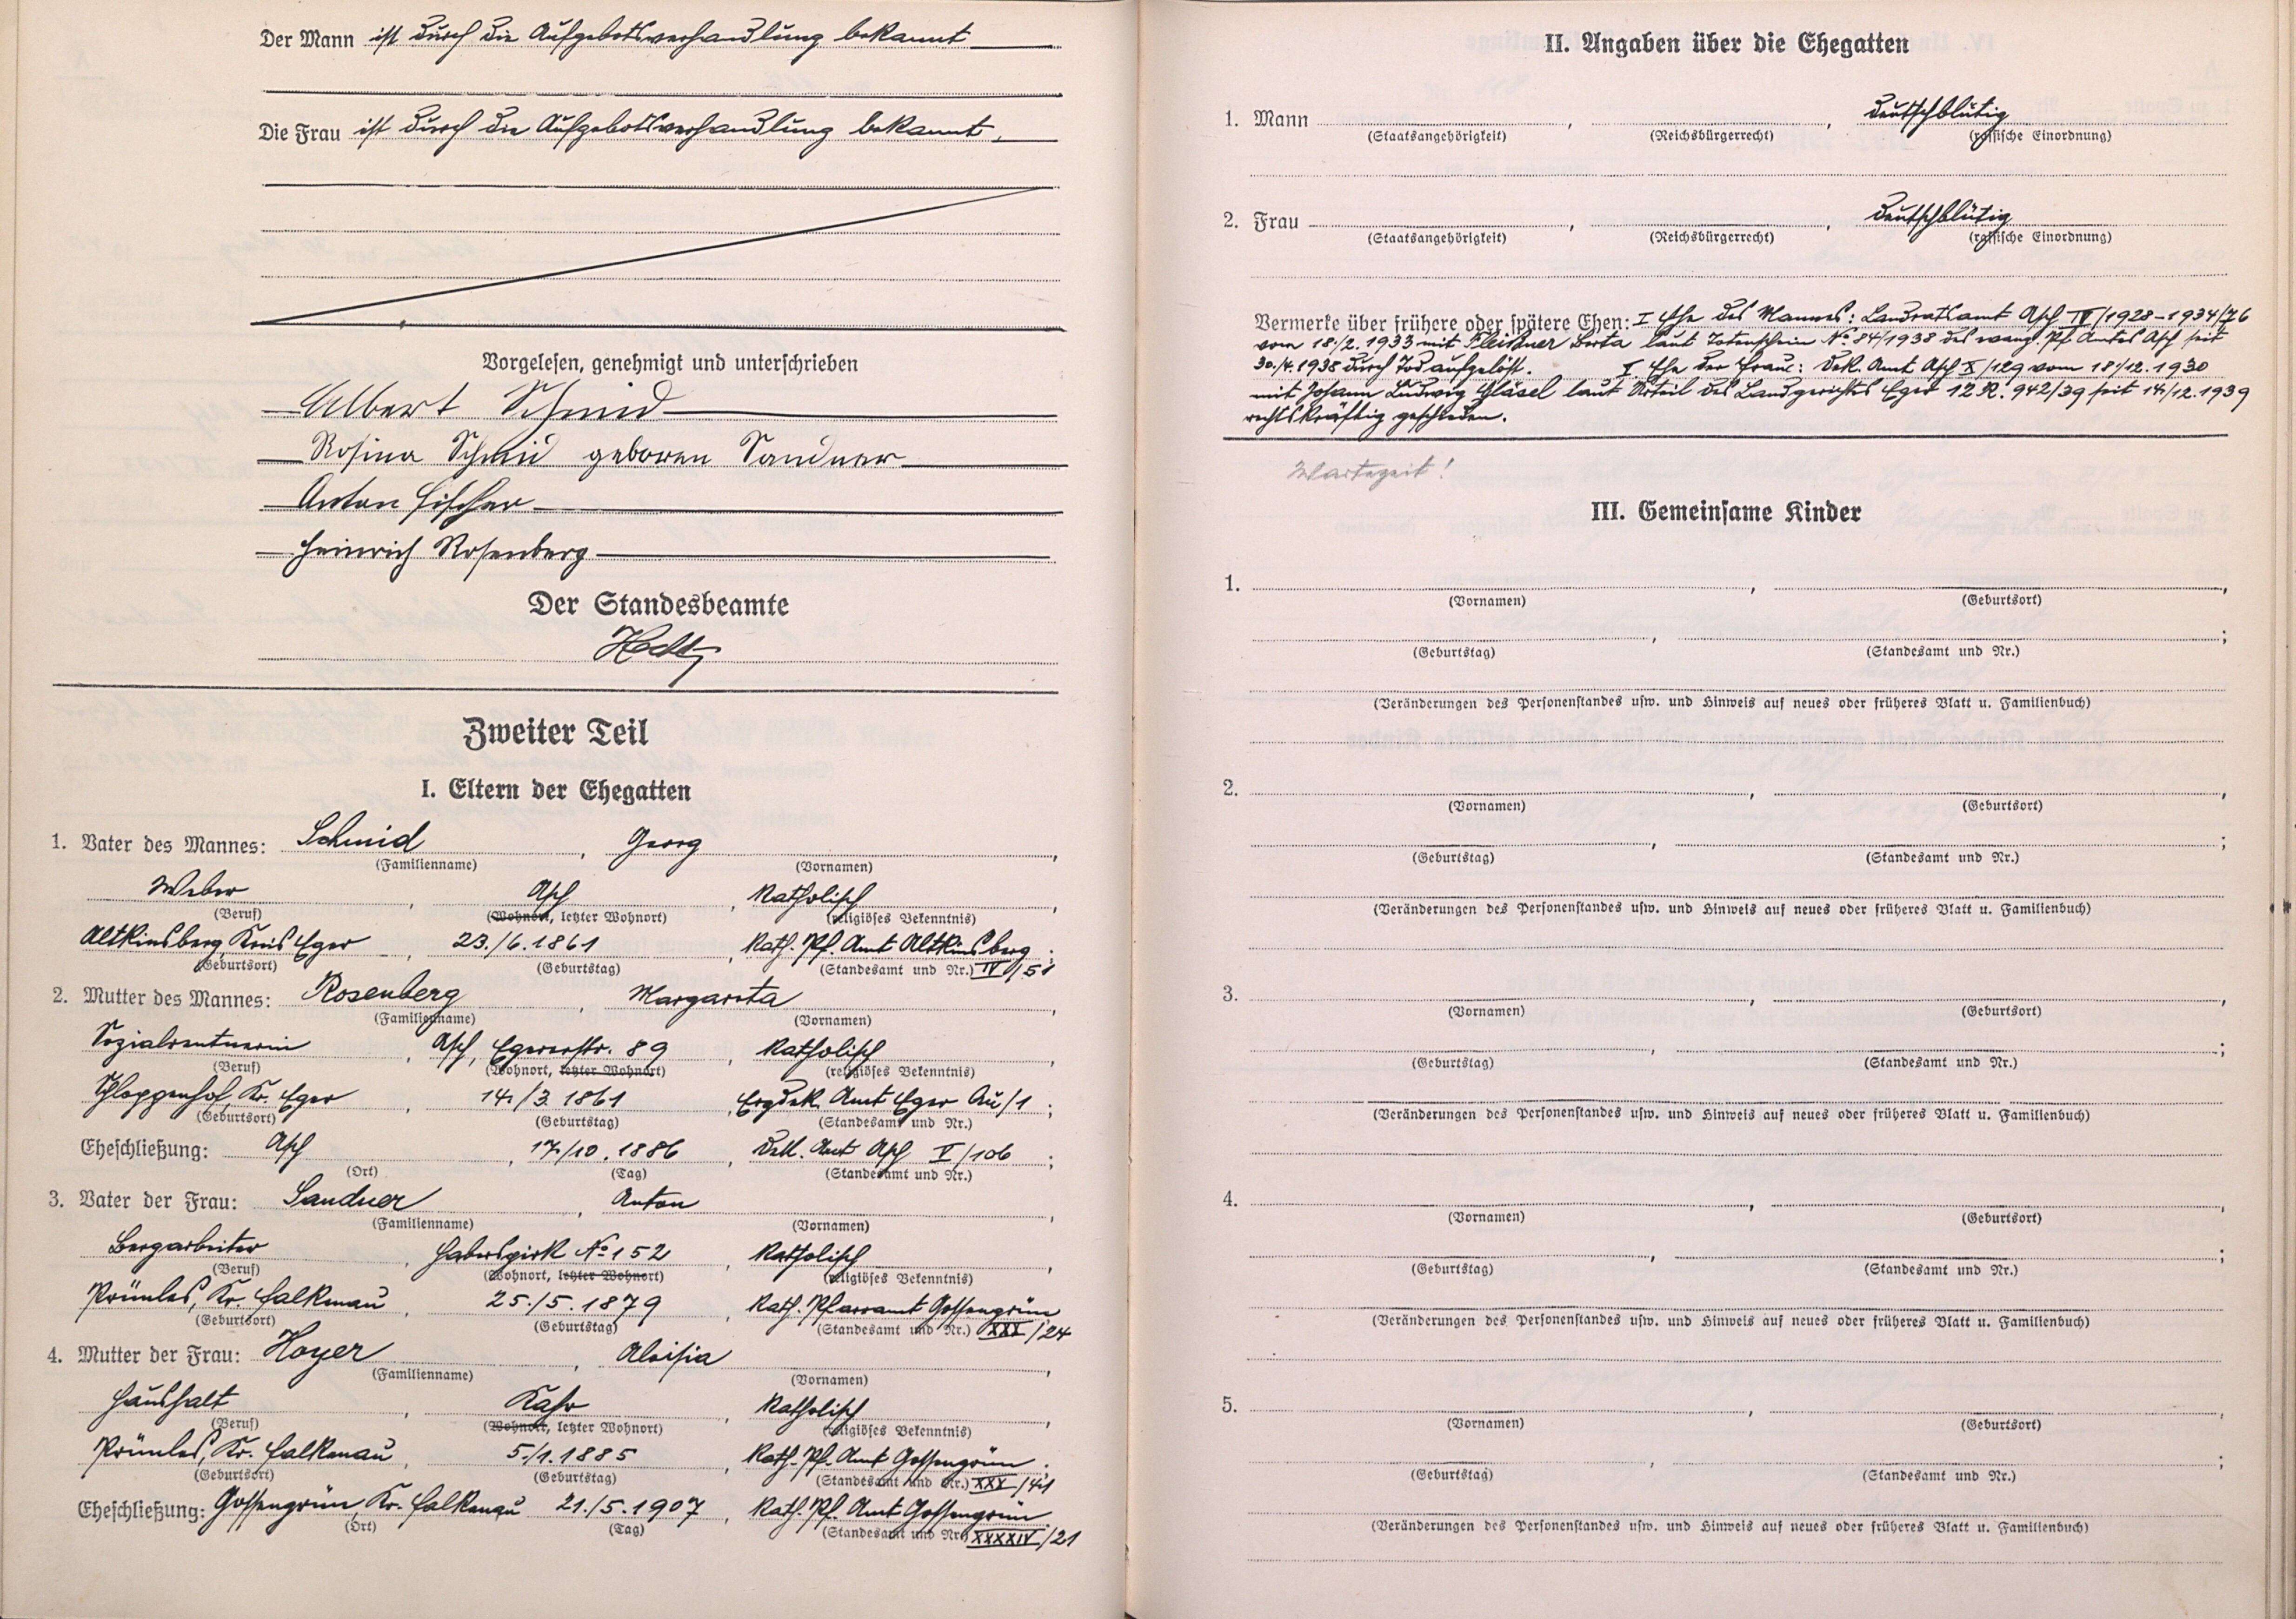 Der Mann ist durch die Aufgebotsverhandlung bekannt
Die Frau ist durch die Aufgebotsverhandlung bekannt.
Vorgelesen, genehmigt und unterschrieben
Albert Schmid
Rosina Schmid geboren Sandner
Anton Fischer
Heinrich Rosenberg
Der Standesbeamte
Zweiter Teil
I. Eltern der Ehegatten
1. Vater des Mannes: Schmid, Georg,
(Familienname) (Vornamen)
Weber, Asch, Katholisch,
(Beruf) (Wohnort, letzter Wohnort) (religiöses Bekenntnis)
Altkinsberg, Kreis Eger, 23./6.1861, Kath. Pf. Amt Altkinsberg;
(Geburtsort) (Geburtstag) (Standesamt und Nr.) IV/51
2. Mutter des Mannes: Rosenberg, Margareta,
(Familienname) (Vornamen)
Sozialrentnerin, Asch, Egererstr. 89, Katholisch,
(Beruf) (Wohnort, letzter Wohnort) (religiöses Bekenntnis)
Schloppenhof, Kr. Eger, 14./3.1861, Erzdek. Amt Eger Au/1;
(Geburtsort) (Geburtstag) (Standesamt und Nr.)
Eheschließung: Asch, 17./10.1886, Dek. Amt Asch V/106;
(Ort) (Tag) (Standesamt und Nr.)
3. Vater der Frau: Sandner, Anton,
(Familienname) (Vornamen)
Bergarbeiter, Haberspirk No 152, Katholisch,
(Beruf) (Wohnort, letzter Wohnort) (religiöses Bekenntnis)
Prünles, Kr. Falkenau, 25./5.1879, Kath. Pfarramt Gossengrün
(Geburtsort) (Geburtstag) (Standesamt und Nr.) XXX/24
4. Mutter der Frau: Hoyer, Aloisia,
(Familienname) (Vornamen)
Haushalt, Kahr, Katholisch,
(Beruf) (Wohnort, letzter Wohnort) (religiöses Bekenntnis)
Prünles, Kr. Falkenau, 5./1.1885, Kath. Pf. Amt Gossengrün;
(Geburtsort) (Geburtstag) (Standesamt und Nr.) XXX/41
Eheschließung: Gossengrün, Kr. Falkenau 21./5.1907, Kath. Pf. Amt Gossengrün
(Ort) (Tag) (Standesamt und Nr.) XXXXIV/21
II. Angaben über die Ehegatten
1. Mann , , deutschblütig
(Staatsangehörigkeit) (Reichsbürgerrecht) (rassische Einordnung)
2. Frau , , deutschblütig
(Staatsangehörigkeit) (Reichsbürgerrecht) (rassische Einordnung)
Vermerke über frühere oder spätere Ehen: I Ehe des Mannes: Landratsamt Asch IV/1928-1934/76
vom 18./2.1933 mit Fleissner Berta laut Totenschein No. 84/1938 des evang. Pf. Amtes Asch seit
30./4.1938 durch Tod aufgelöst. I. Ehe der Frau: Dek. Amt Asch X/129 vom 18/12.1930
mit Johann Ludwig Gläsel laut Urteil des Landgerichts Eger 12 R. 942/39 seit 14/12.1939
rechtskräftig geschieden.
Wartezeit!
III. Gemeinsame Kinder
1. , ,
(Vornamen) (Geburtsort)
, ;
(Geburtstag) (Standesamt und Nr.)
(Veränderungen des Personenstandes usw. und Hinweis auf neues oder früheres Blatt u. Familienbuch)
2. , ,
(Vornamen) (Geburtsort)
, ;
(Geburtstag) (Standesamt und Nr.)
(Veränderungen des Personenstandes usw. und Hinweis auf neues oder früheres Blatt u. Familienbuch)
3. , ,
(Vornamen) (Geburtsort)
, ;
(Geburtstag) (Standesamt und Nr.)
(Veränderungen des Personenstandes usw. und Hinweis auf neues oder früheres Blatt u. Familienbuch)
4. , ,
(Vornamen) (Geburtsort)
, ;
(Geburtstag) (Standesamt und Nr.)
(Veränderungen des Personenstandes usw. und Hinweis auf neues oder früheres Blatt u. Familienbuch)
5. , ,
(Vornamen) (Geburtsort)
, ;
(Geburtstag) (Standesamt und Nr.)
(Veränderungen des Personenstandes usw. und Hinweis auf neues oder früheres Blatt u. Familienbuch)